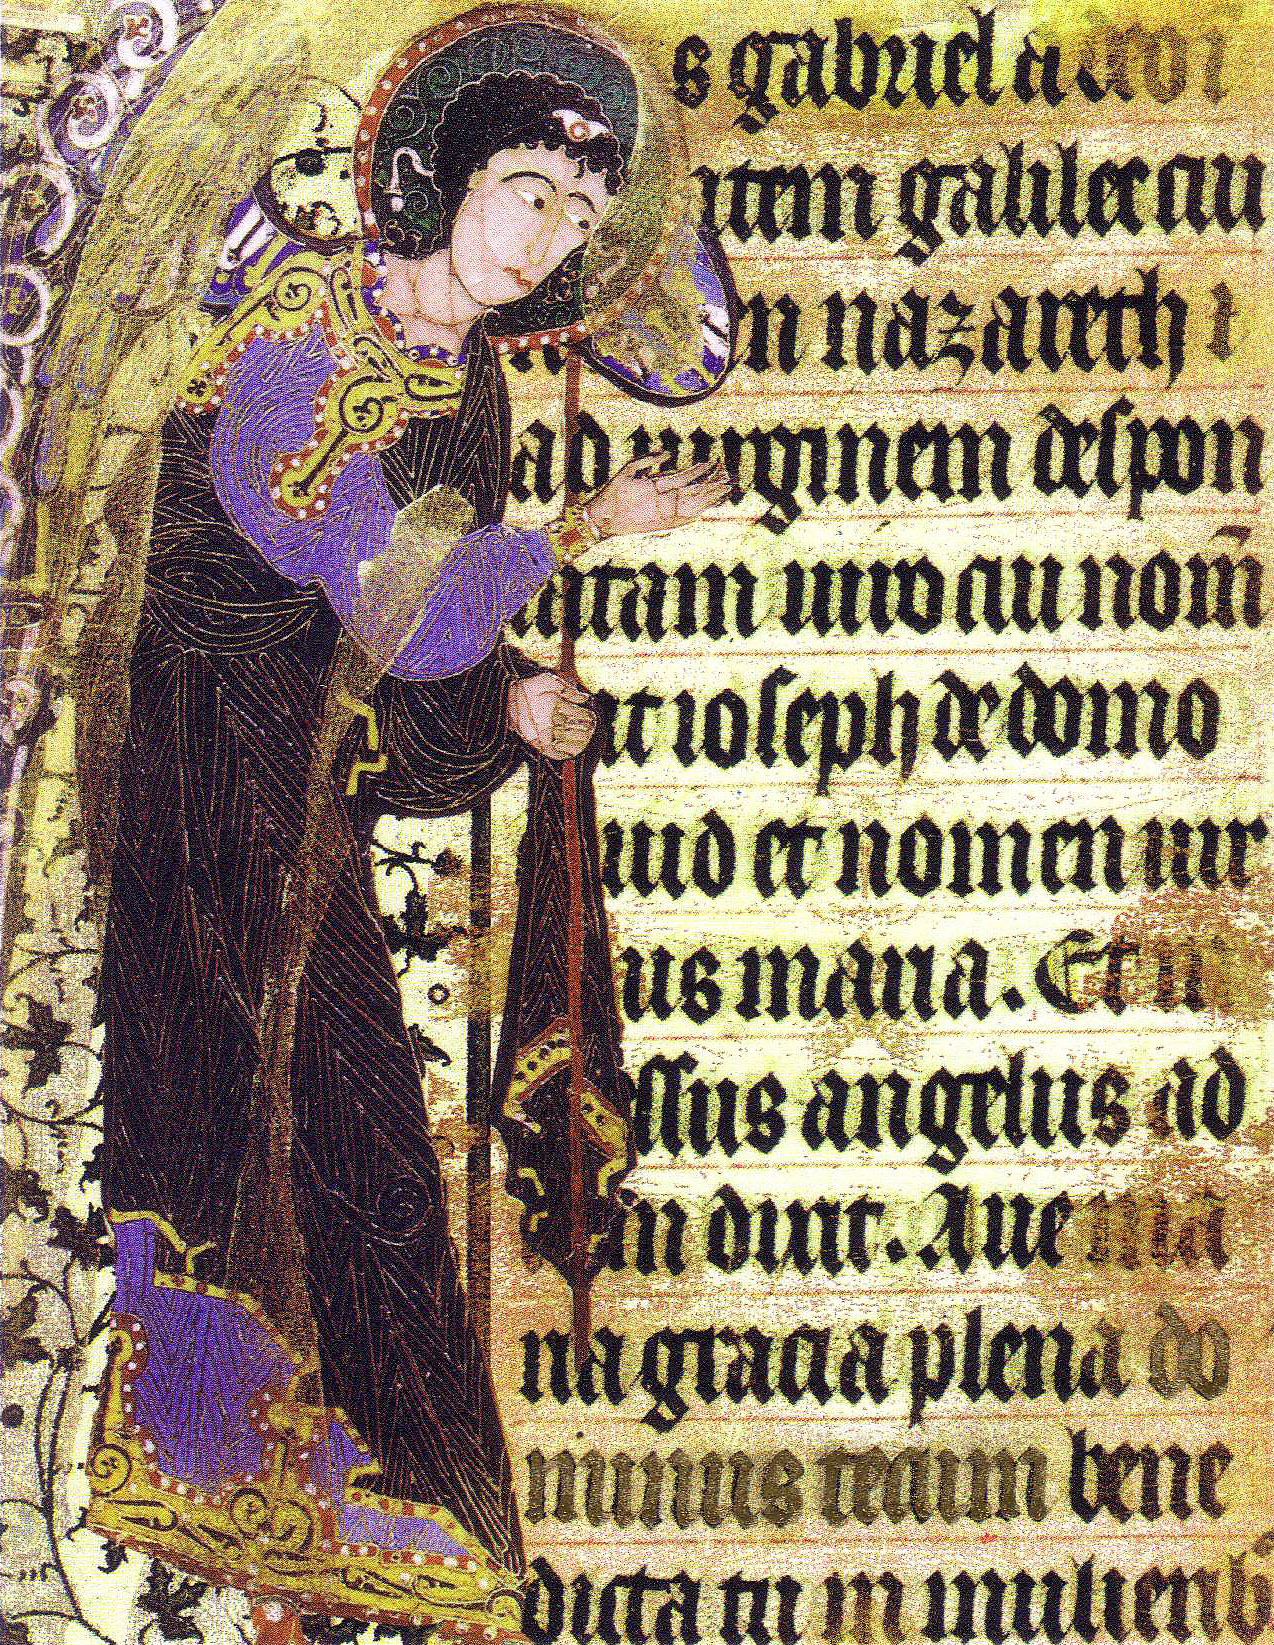 s gabriel a deo i
item galileae cui
en nazareth i
ad virginem despon
satam uiro cui nom̄
at ioseph de domo
uid et nomen uir
us maria. Et in
ssus angelus ad
m dixit. Aue ma
na gracia plena do
minus tecum bene
dicta tu in mulierib